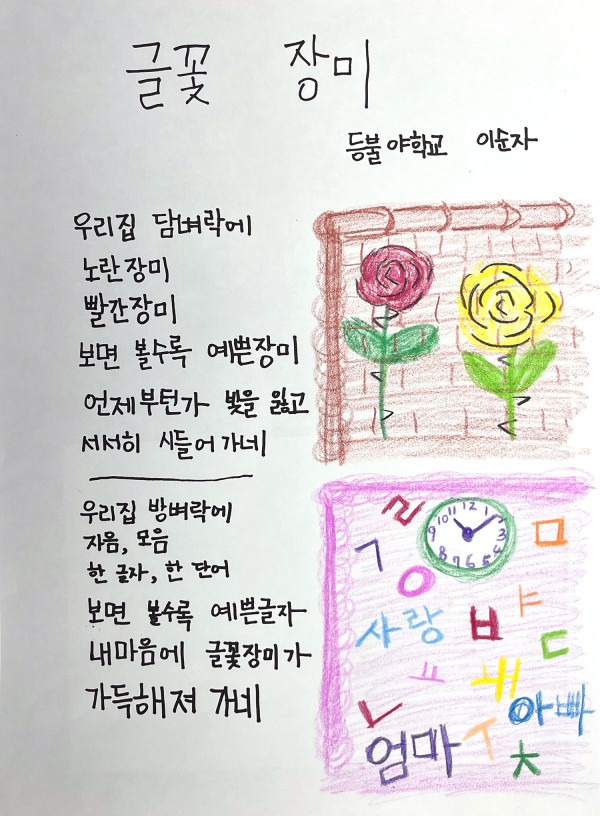 글꽃 장미
등불 야학교 이순자
우리집 담벼락에
노란장미
빨간장미
보면 볼수록 예쁜장미
언제부턴가 빛을 잃고
서서히 시들어 가네
우리집 방벼락에
자음, 모음
한 글자, 한 단어
보면 볼수록 예쁜글자
내마음에 글꽃장미가
가득해져 가네
ㄹ
12 1 2 3 4 5 6 7 8 9 10 11
ㅁ
ㄱ
ㅇ
ㅑ
사랑
ㅂ
ㄷ
ㅛ
ㅐ
ㄴ
아빠
엄마
ㅜ
ㅊ